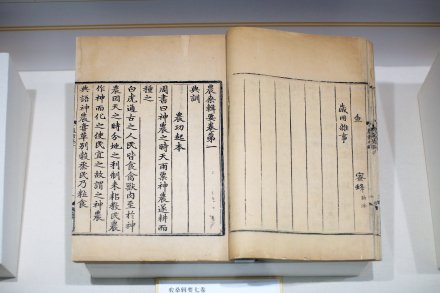 魚 蜜蜂
歲用雜事
農桑輯要卷第一
典訓
農功起本
周書曰神農之時天雨粟神農遂耕而
種之
白虎通古之人民皆食禽獸肉至於神
農因天之時分地之利制耒耜教民農
作神而化之使民宜之故謂之神農
典語神農嘗草別穀烝民乃粒食
農桑輯要七卷